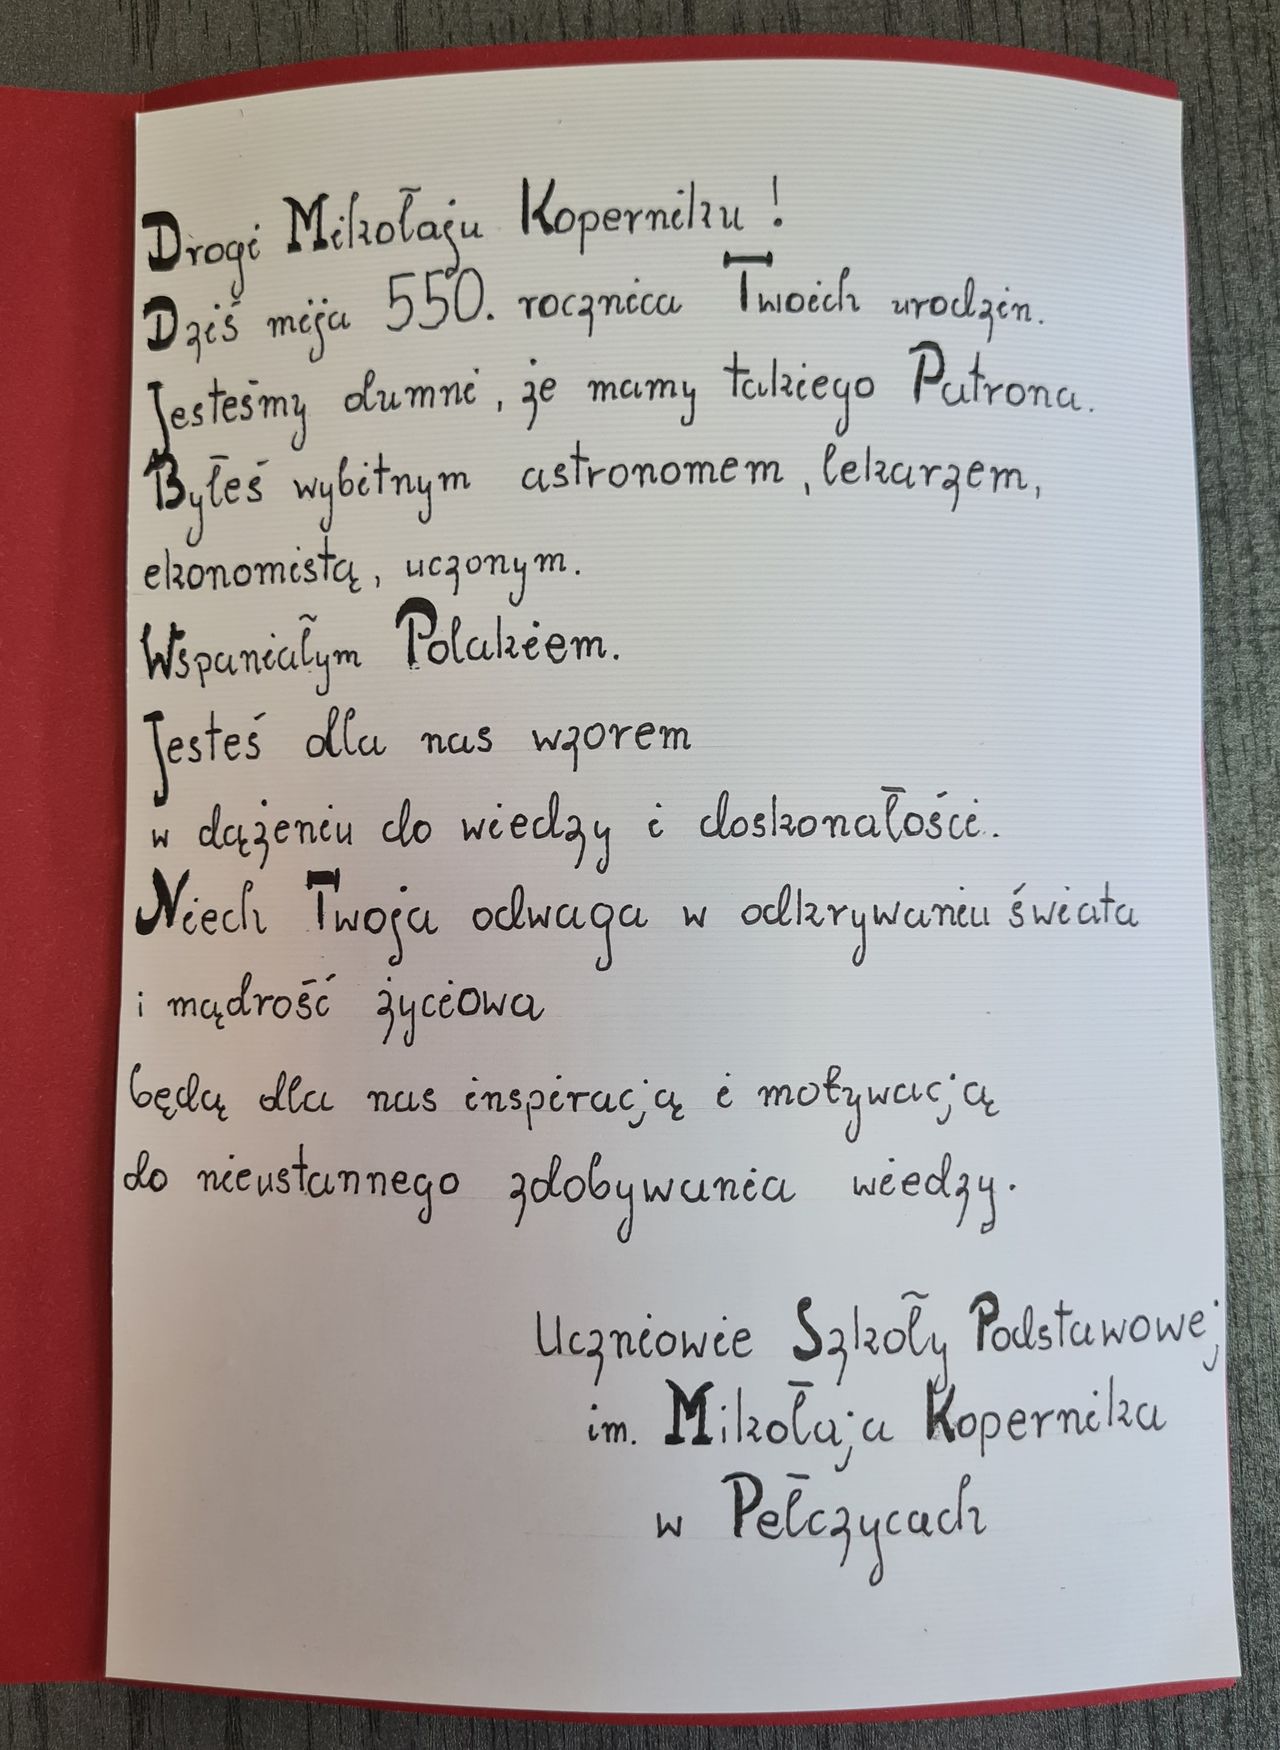 Drogi Mikołaju Koperniku!
Dziś mija 550. rocznica Twoich urodzin.
Jesteśmy dumni, że mamy takiego Patrona.
Byłeś wybitnym astronomem, lekarzem,
ekonomistą, uczonym.
Wspaniałym Polakiem.
Jesteś dla nas wzorem
w dążeniu do wiedzy i doskonałości.
Niech Twoja odwaga w odkrywaniu świata
i mądrość życiowa
będą dla nas inspiracją i motywacją
do nieustannego zdobywania wiedzy.
Uczniowie Szkoły Podstawowej
im. Mikołaja Kopernika
w Pełczycach